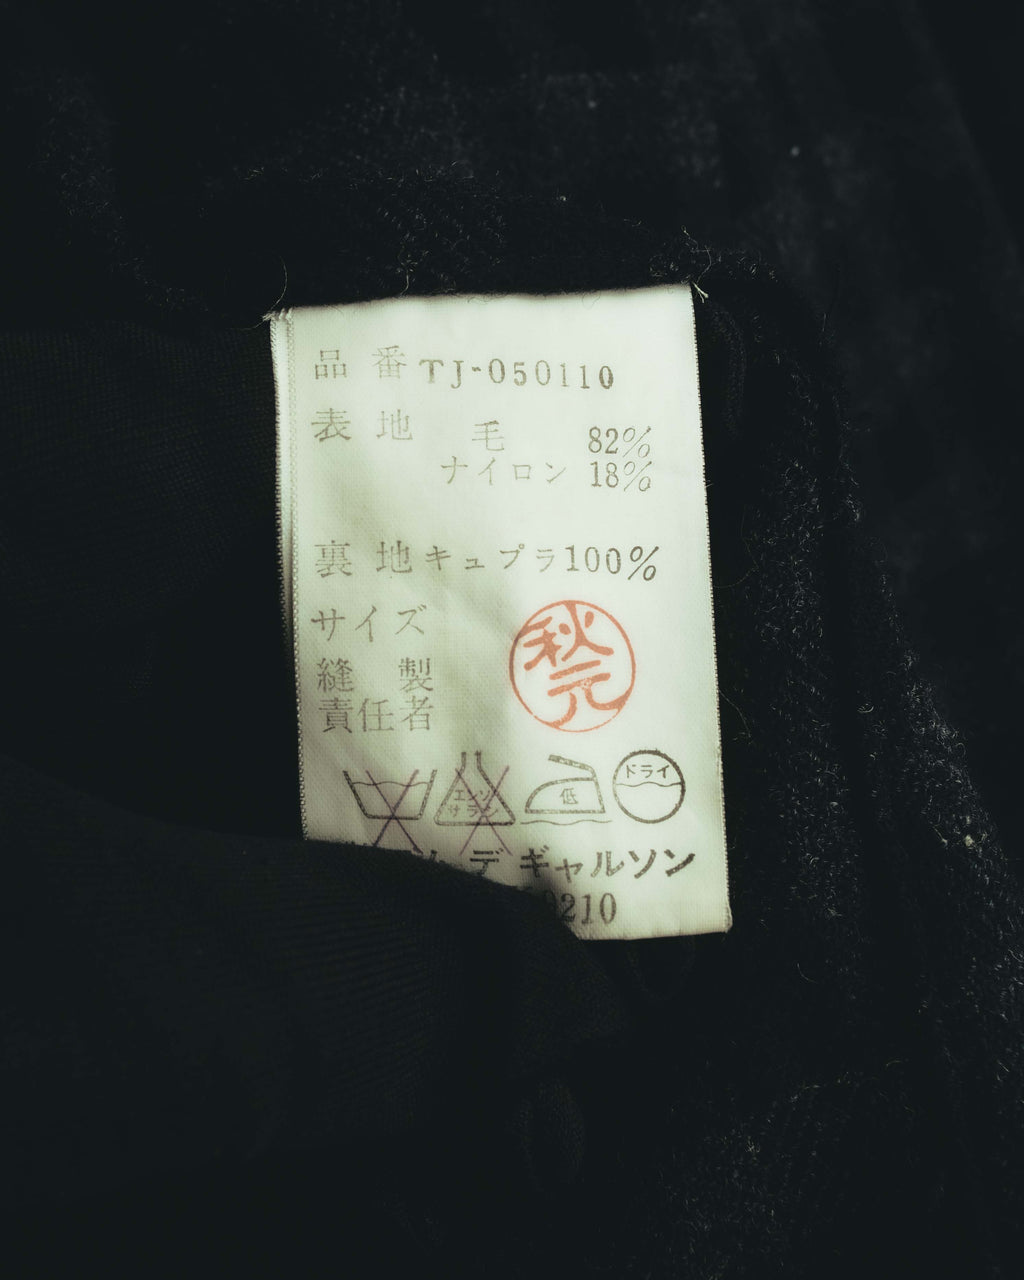 品番 TJ-050110
表地 毛 82%
ナイロン 18%
裏地 キュプラ 100%
サイズ
秋元
縫製
責任者
エンソ
サラシ
低
ドライ
デ ギャルソン
210